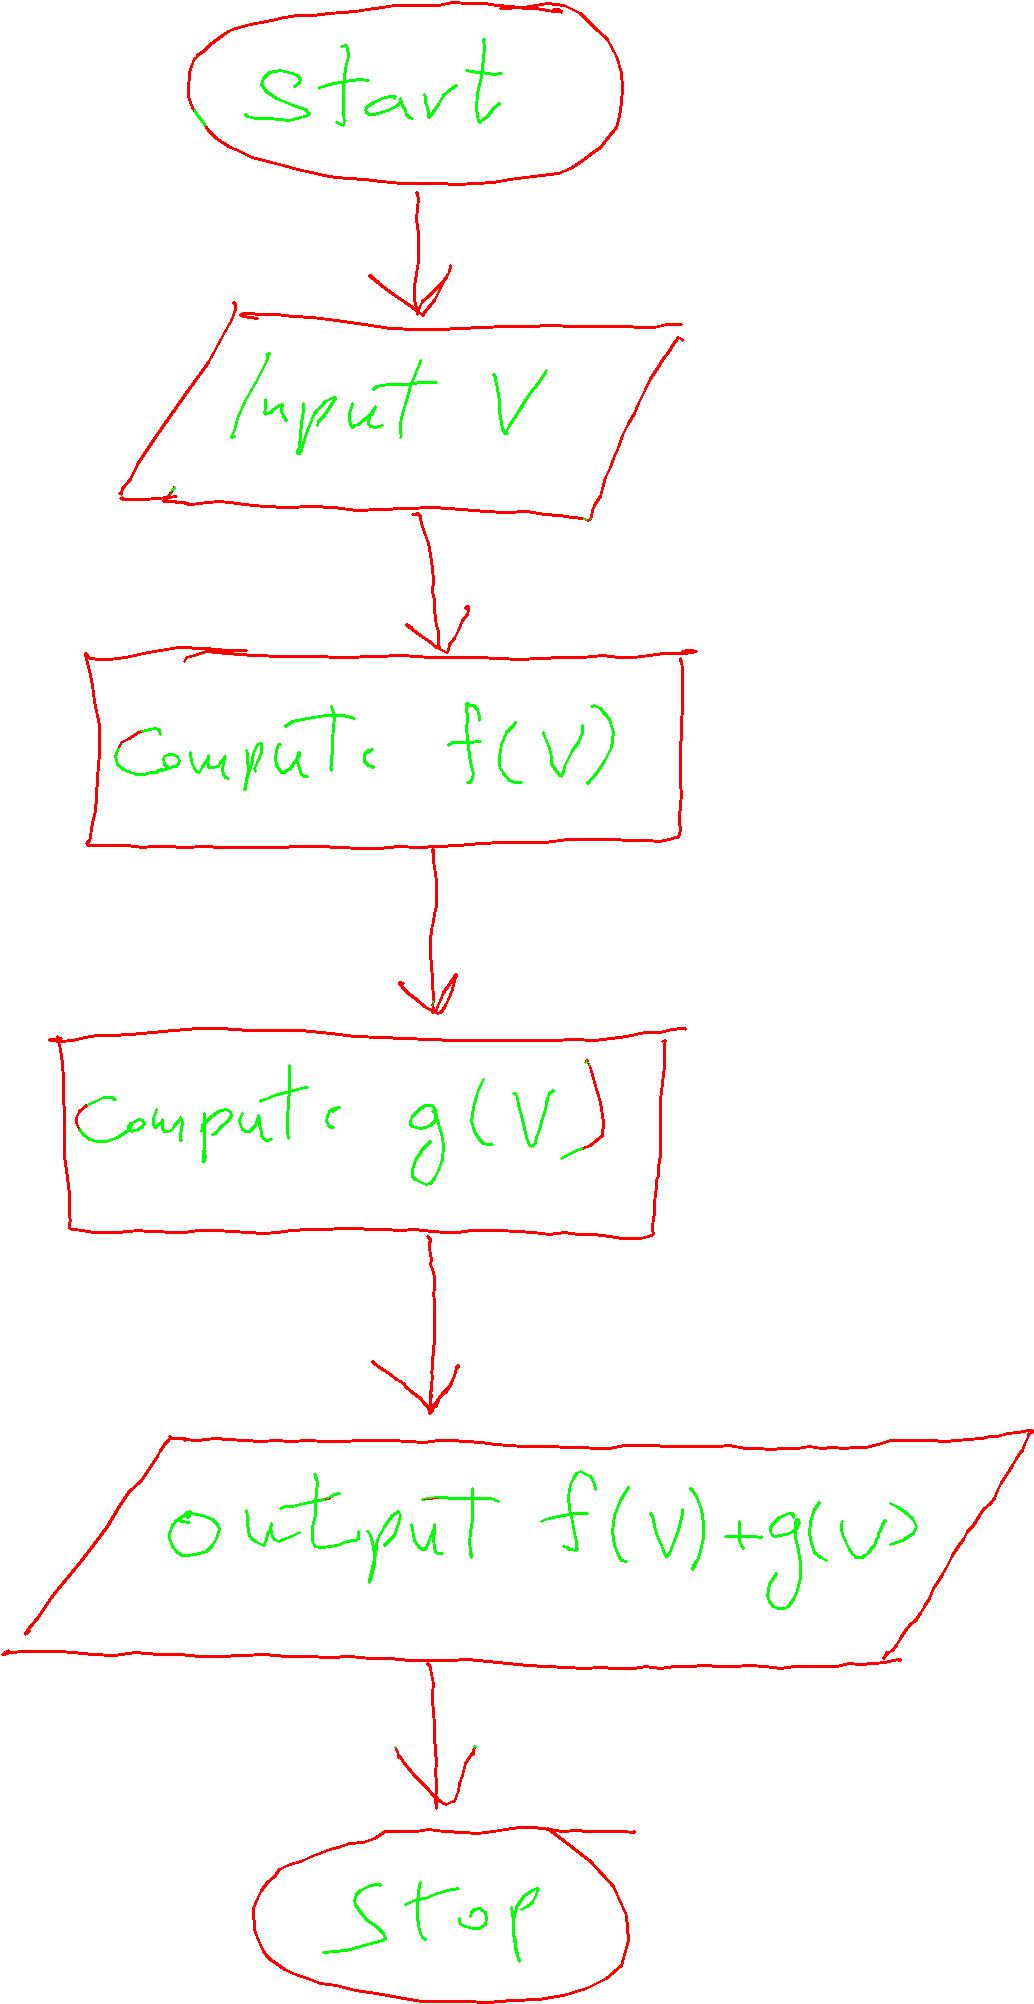 Start
Input V
Compute f(V)
Compute g(V)
Output f(V)+g(v)
Stop